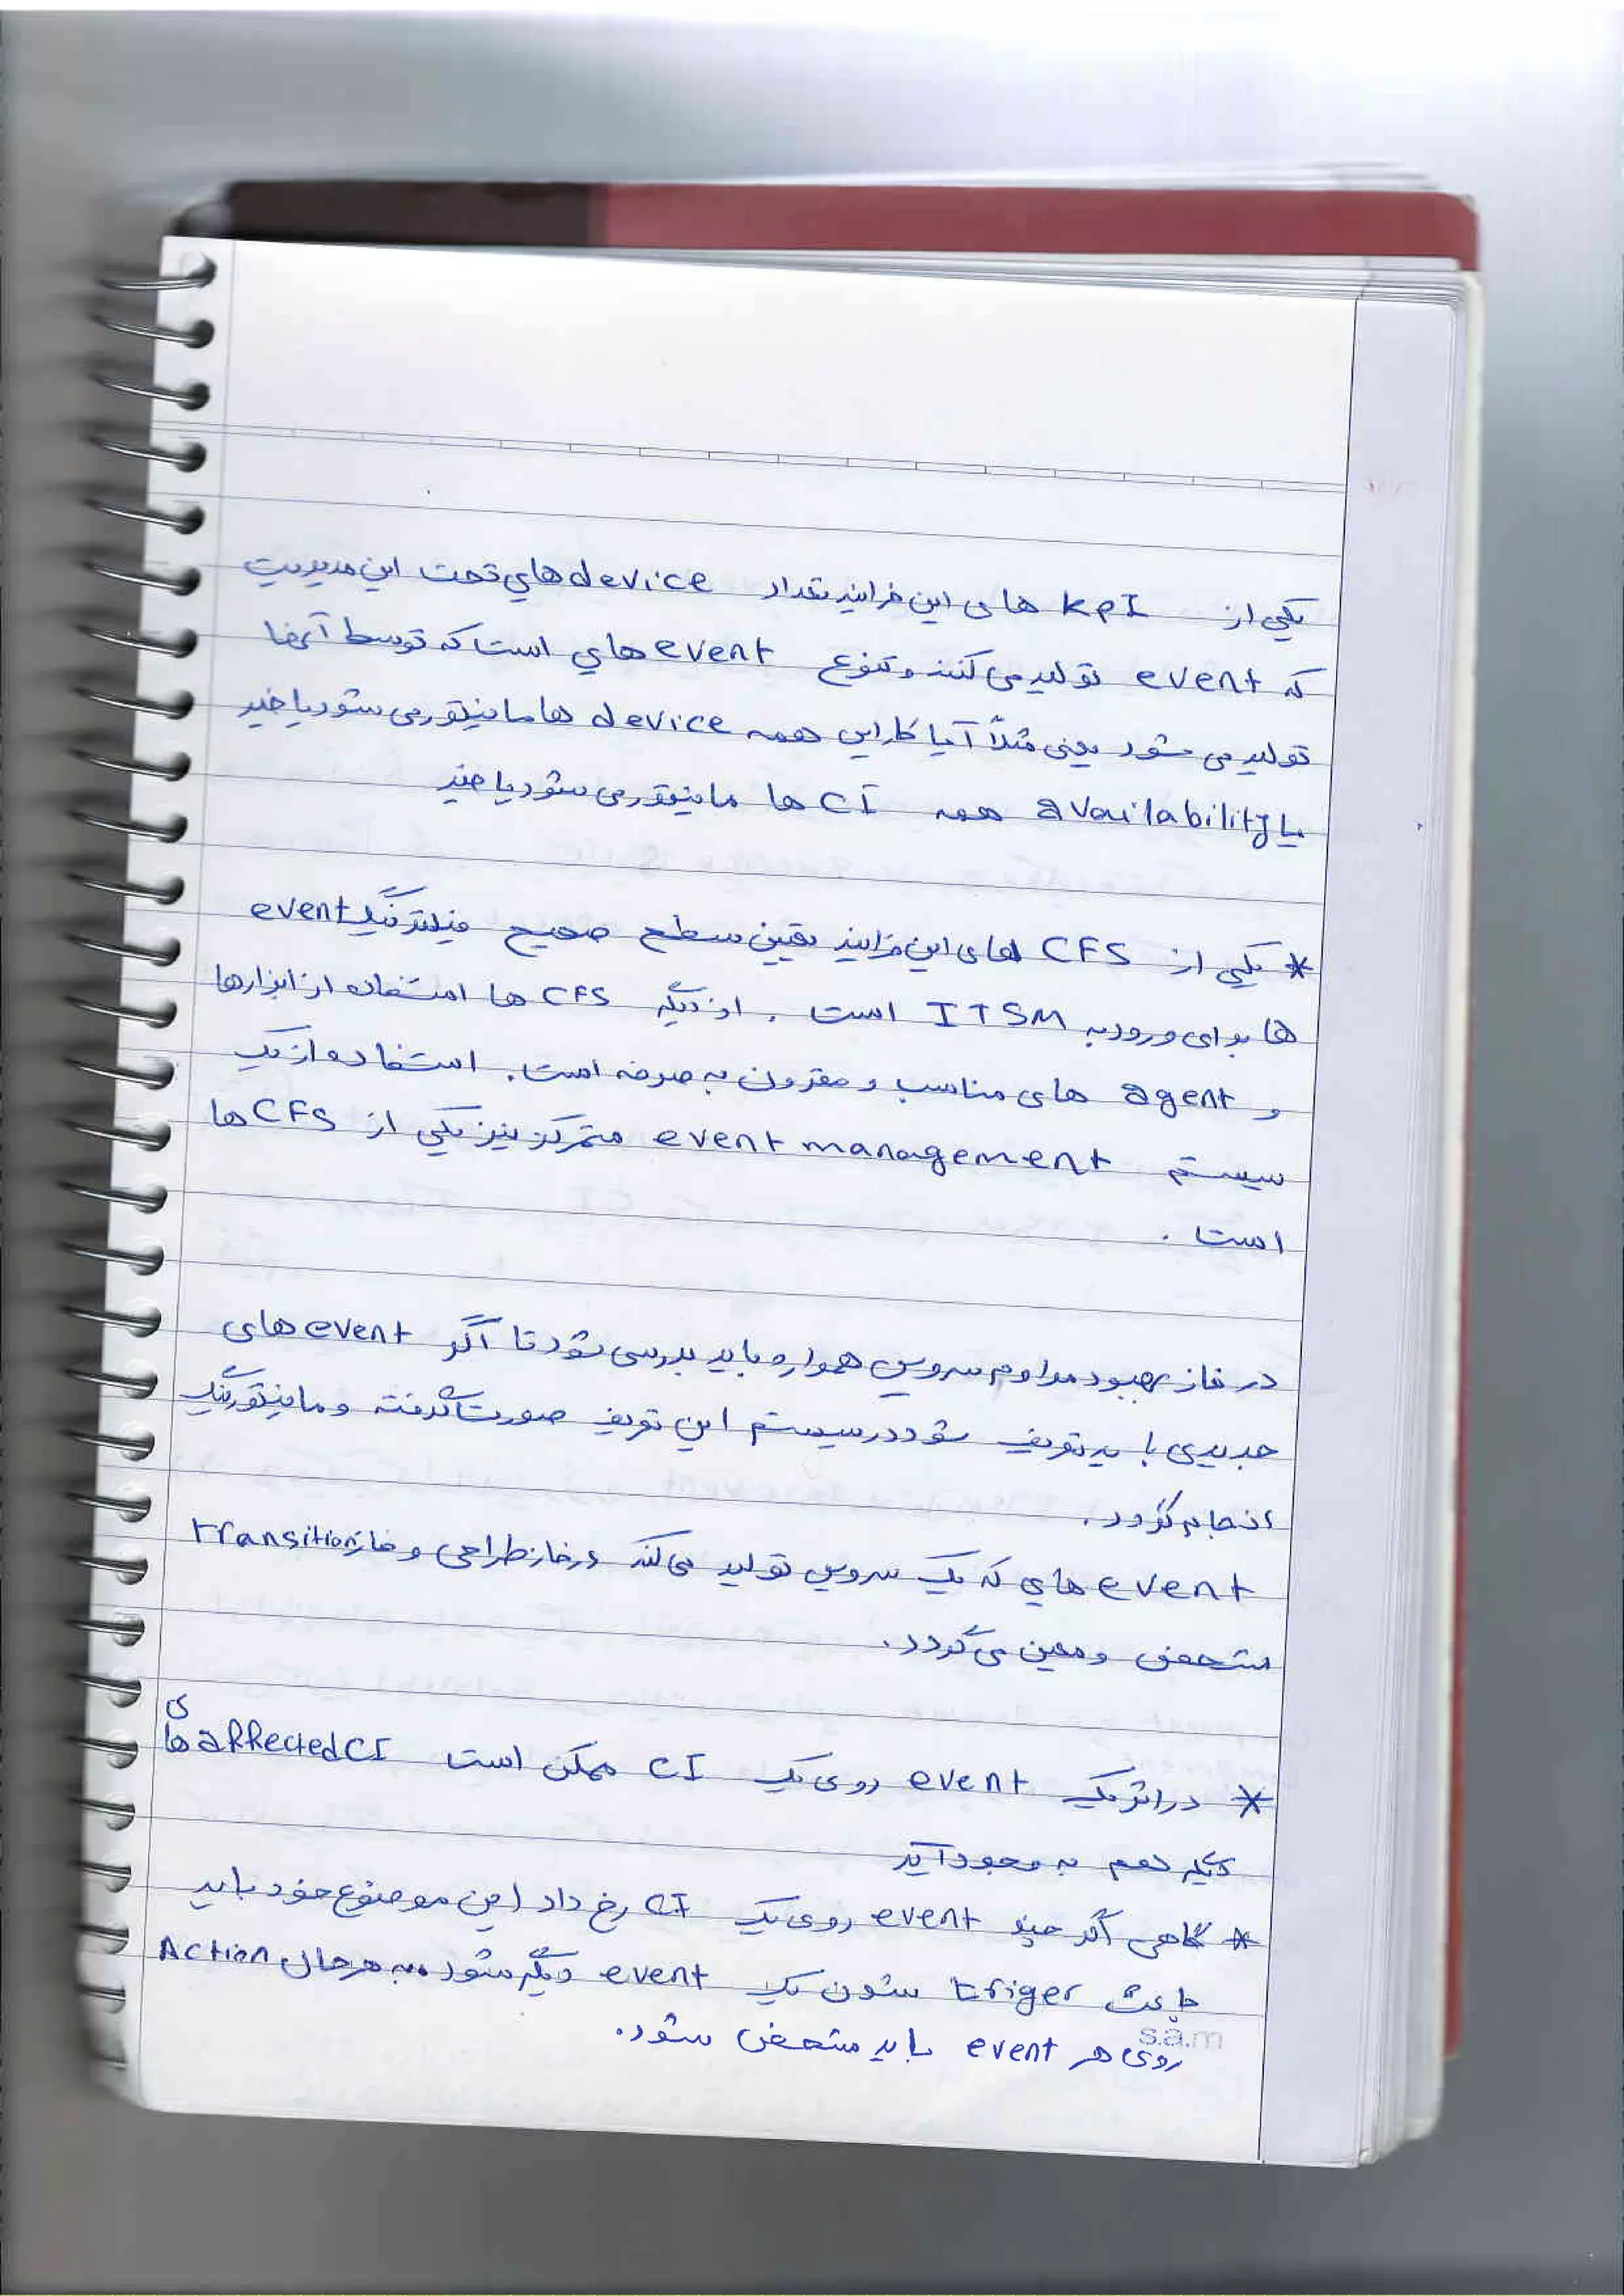 یکی از KPI های این فرایند تعداد device های تحت این مدیریت
که event تولید می کنند و تنوع event های است که توسط آنها
تولید می شود یعنی مثلاً آیا کارایی همه device ها مانیتور می شود یا خیر
یا availability همه CI ها مانیتور می شود یا خیر
* یکی از CFS های این فرایند تعیین سطح صحیح فیلترینگ event
ها برای ورود به ITSM است . از دیگر CFS ها استفاده از ابزارها
و agent های مناسب و مقرون به صرفه است. استفاده از یک
سیستم event management متمرکز نیز یکی از CFS ها
است .
در فاز بهبود مداوم سرویس همواره باید بررسی شود تا اگر event های
جدیدی باید تعریف شود در سیستم این تعریف صورت گرفته و مانیتورینگ
انجام گردد.
event های که یک سرویس تولید می کند در فاز طراحی و فاز transition
مشخص و معین می گردد.
* در اثر یک event روی یک CI ممکن است affected CI های
دیگر هم به وجود آید
* گاهی اگر چند event روی یک CI رخ داد این موضوع خود باید
باعث triger شدن یک event دیگر شود. به هر حال Action
روی هر event باید مشخص شود.
s.a.m